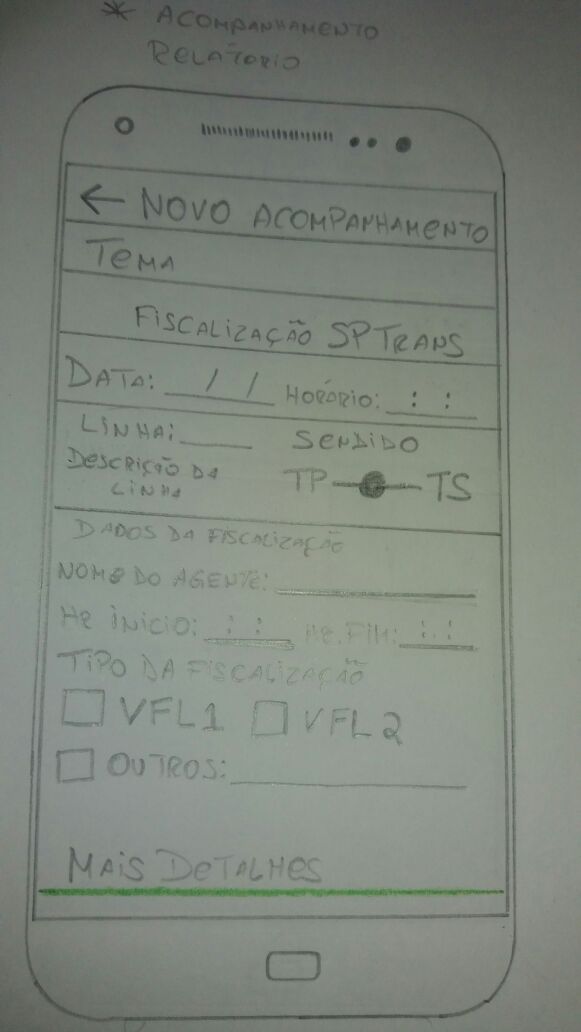 * ACOMPANHAMENTO
RELATÓRIO
← NOVO ACOMPANHAMENTO
TEMA
FISCALIZAÇÃO SPTRANS
DATA: __/__/__ HORÁRIO: __:__:__
LINHA: ____ SENDIDO
DESCRIÇÃO DA
LINHA
TP TS
DADOS DA FISCALIZAÇÃO
NOME DO AGENTE: ____
HR INICIO: __:__:__ HR.FIM: __:__:__
TIPO DA FISCALIZAÇÃO
VFL1 VFL2
OUTROS: ____
MAIS DETALHES